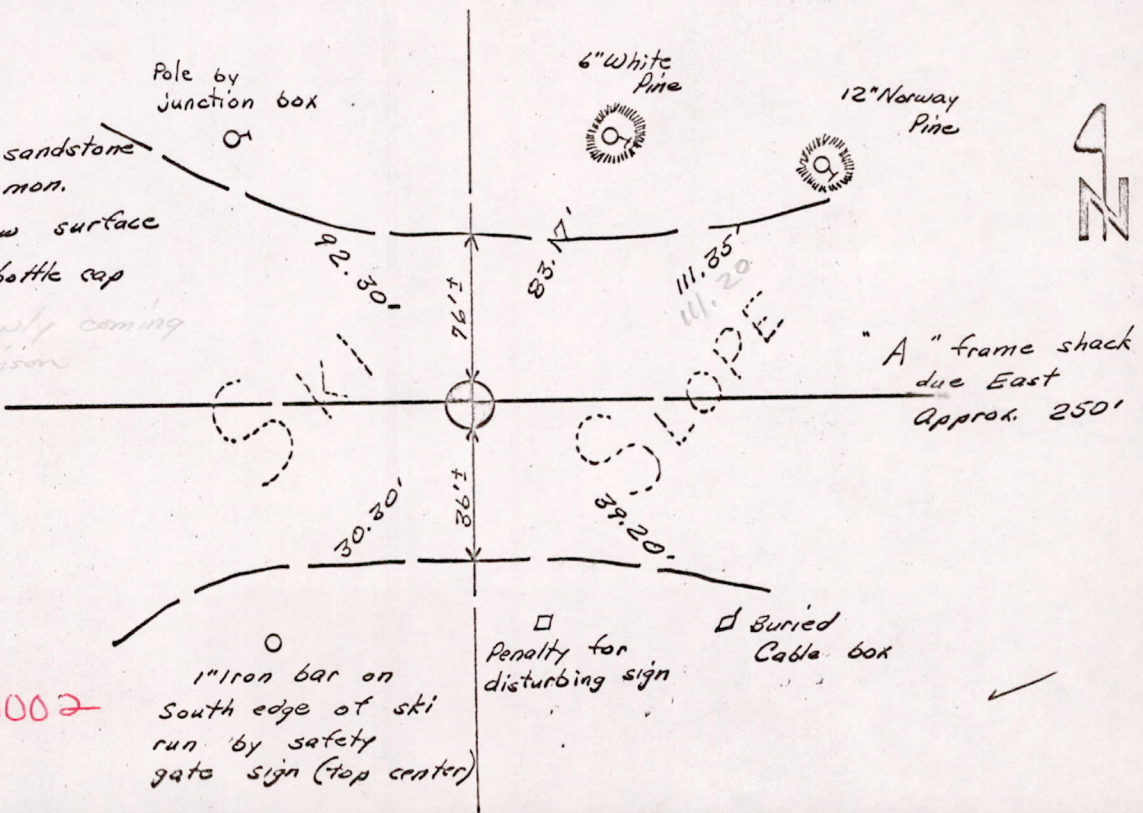 Pole by
junction box
6" White
Pine
12" Norway
Pine
sandstone
mon.
surface
bottle cap
coming
N
92.30'
83.17'
111.35'
111.20
SKI SLOPE
"A" frame shack
due East
Approx. 250'
30.30'
39.20'
1" Iron bar on
South edge of ski
run by safety
gate sign (top center)
Penalty for
disturbing sign
Buried
Cable box
002